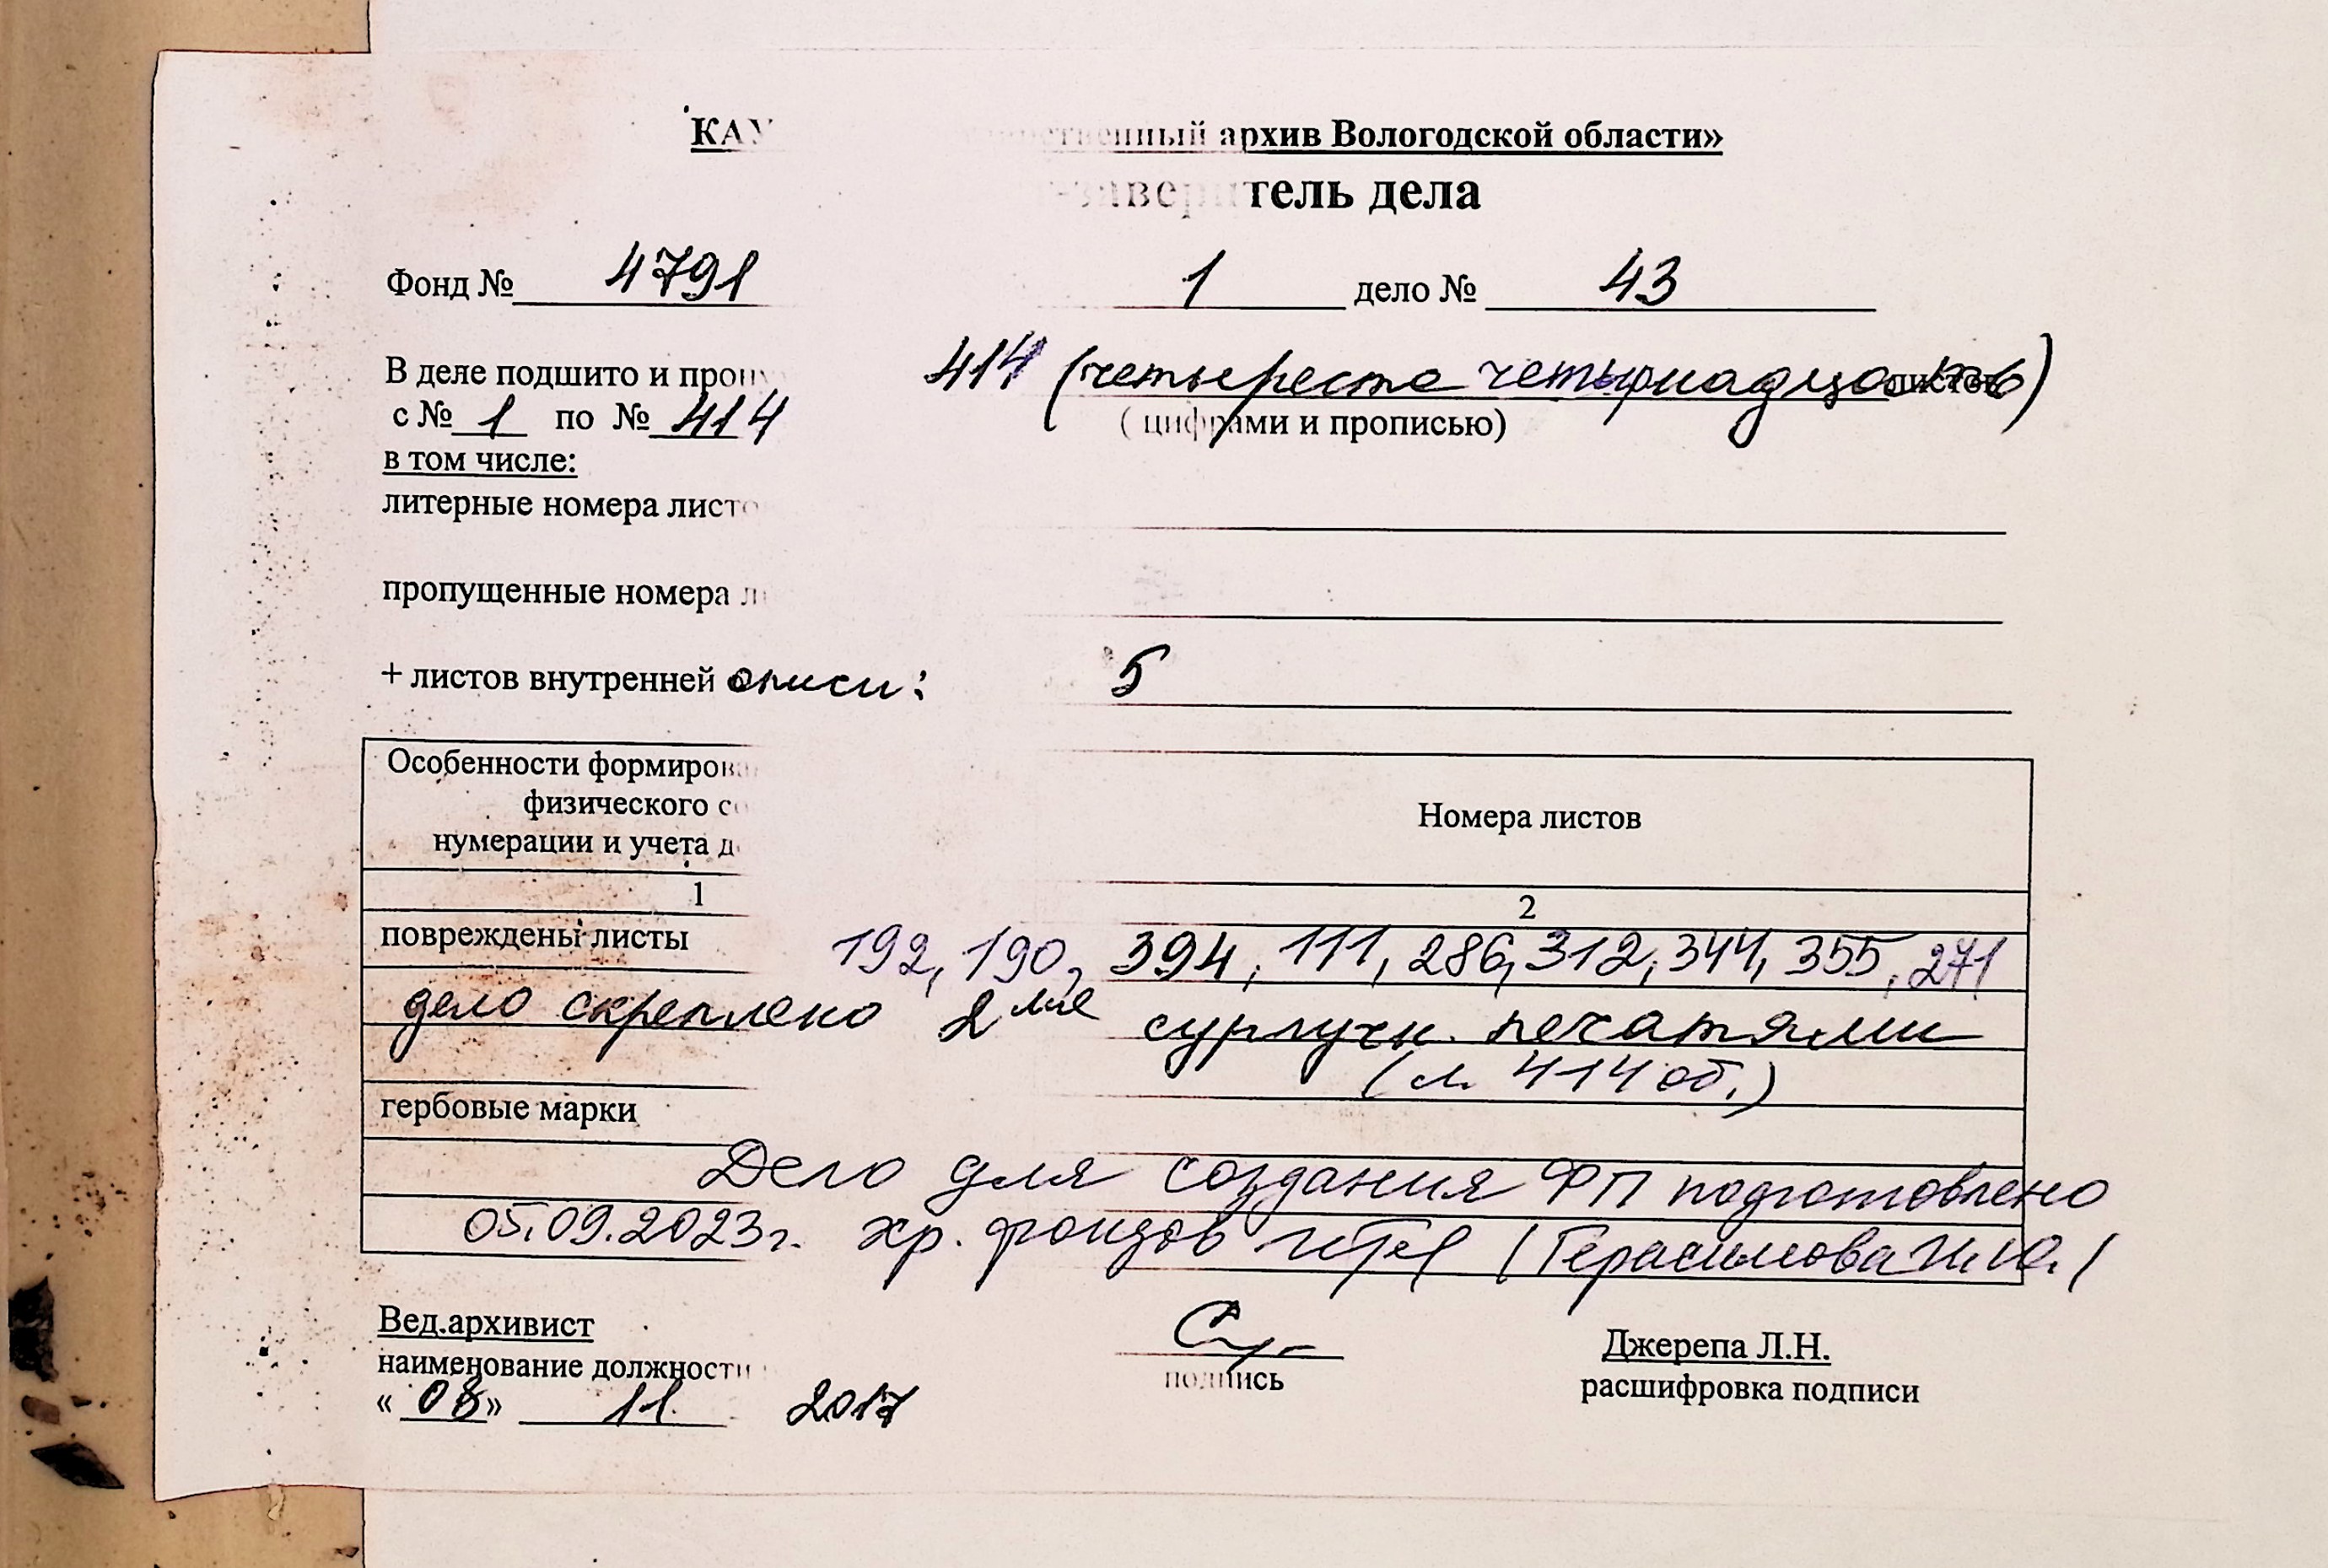 КАУ ственный архив Вологодской области»
-заверитель дела
Фонд № 4791 1 дело № 43
В деле подшито и прону 414 (четыреста четырнадцать) листов
с № 1 по № 414 ( цифрами и прописью)
в том числе:
литерные номера листо
пропущенные номера л
+ листов внутренней описи: 5
Особенности формирова
физического со
нумерации и учета д
Номера листов
1 2
повреждены листы 192, 190, 394, 111, 286, 312, 344, 355, 271
дело скреплено 2мя сургучн. печатями
(л. 414 об.)
гербовые марки
Дело для создания ФП подготовлено
05.09.2023г. хр. фондов (Герасимова И.Ю.)
Вед.архивист Джерепа Л.Н.
наименование должности подпись расшифровка подписи
« 08 » 11 2017